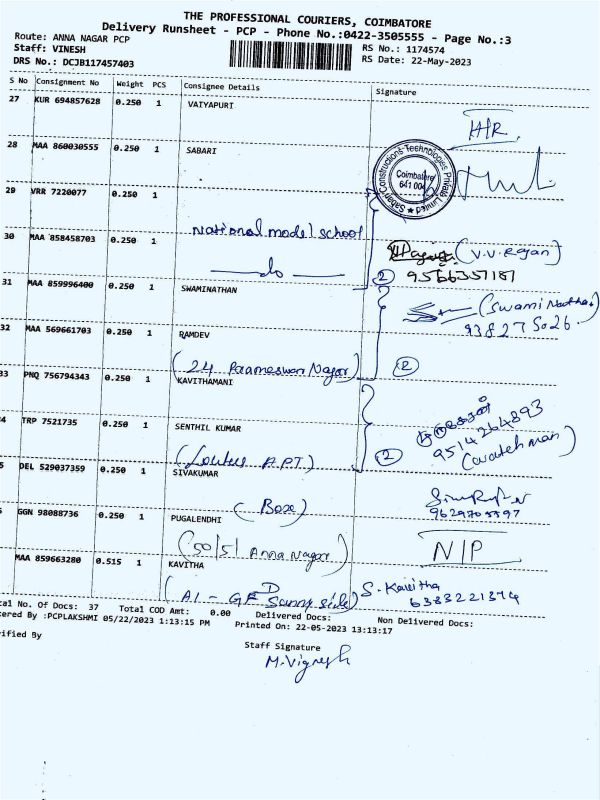 THE PROFESSIONAL COURIERS, COIMBATORE
Delivery Runsheet - PCP - Phone No.:0422-3505555 - Page No.:3
Route: ANNA NAGAR PCP
RS No.: 1174574
Staff: VINESH
RS Date: 22-May-2023
DRS No.: DCJB117457403
S No Consignment No Weight PCS Consignee Details Signature
27 KUR 694857628 0.250 1 VAIYAPURI
28 MAA 860030555 0.250 1 SABARI
Constructions Technologies Private Limited
Coimbatore
641 004
29 VRR 7220077 0.250 1
National model school
30 MAA 858458703 0.250 1
(V.V. Rajan)
do
2
31 MAA 859996400 0.250 1 SWAMINATHAN
32 MAA 569661703 0.250 1 RAMDEV
(24 Parameswan Nagar)
2
33 PNQ 756794343 0.250 1 KAVITHAMANI
9514264893
4 TRP 7521735 0.250 1 SENTHIL KUMAR
2
5 DEL 529037359 0.250 1 SIVAKUMAR
(Box)
GGN 98088736 0.250 1 PUGALENDHI
(50/5/ Anna Nagar)
N/P
MAA 859663280 0.515 1 KAVITHA
S. Kavitha
6383221374
tal No. Of Docs: 37 Total COD Amt: 0.00 Delivered Docs: Non Delivered Docs:
ered By :PCPLAKSHMI 05/22/2023 1:13:15 PM Printed On: 22-05-2023 13:13:17
rified By
Staff Signature
M.Vignesh